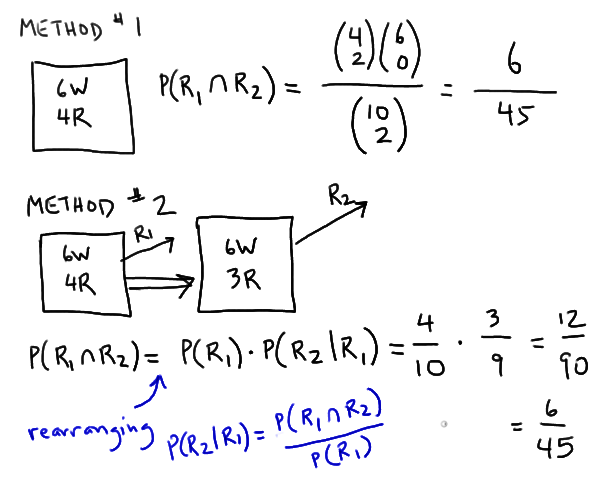 METHOD #1
6W
4R
P(R₁ ∩ R₂) = (4 2)(6 0) / (10 2) = 6/45
METHOD #2
R1
R2
6W
4R
6W
3R
P(R₁ ∩ R₂) = P(R₁) · P(R₂|R₁) = 4/10 · 3/9 = 12/90
rearranging P(R₂|R₁) = P(R₁ ∩ R₂) / P(R₁)
= 6/45